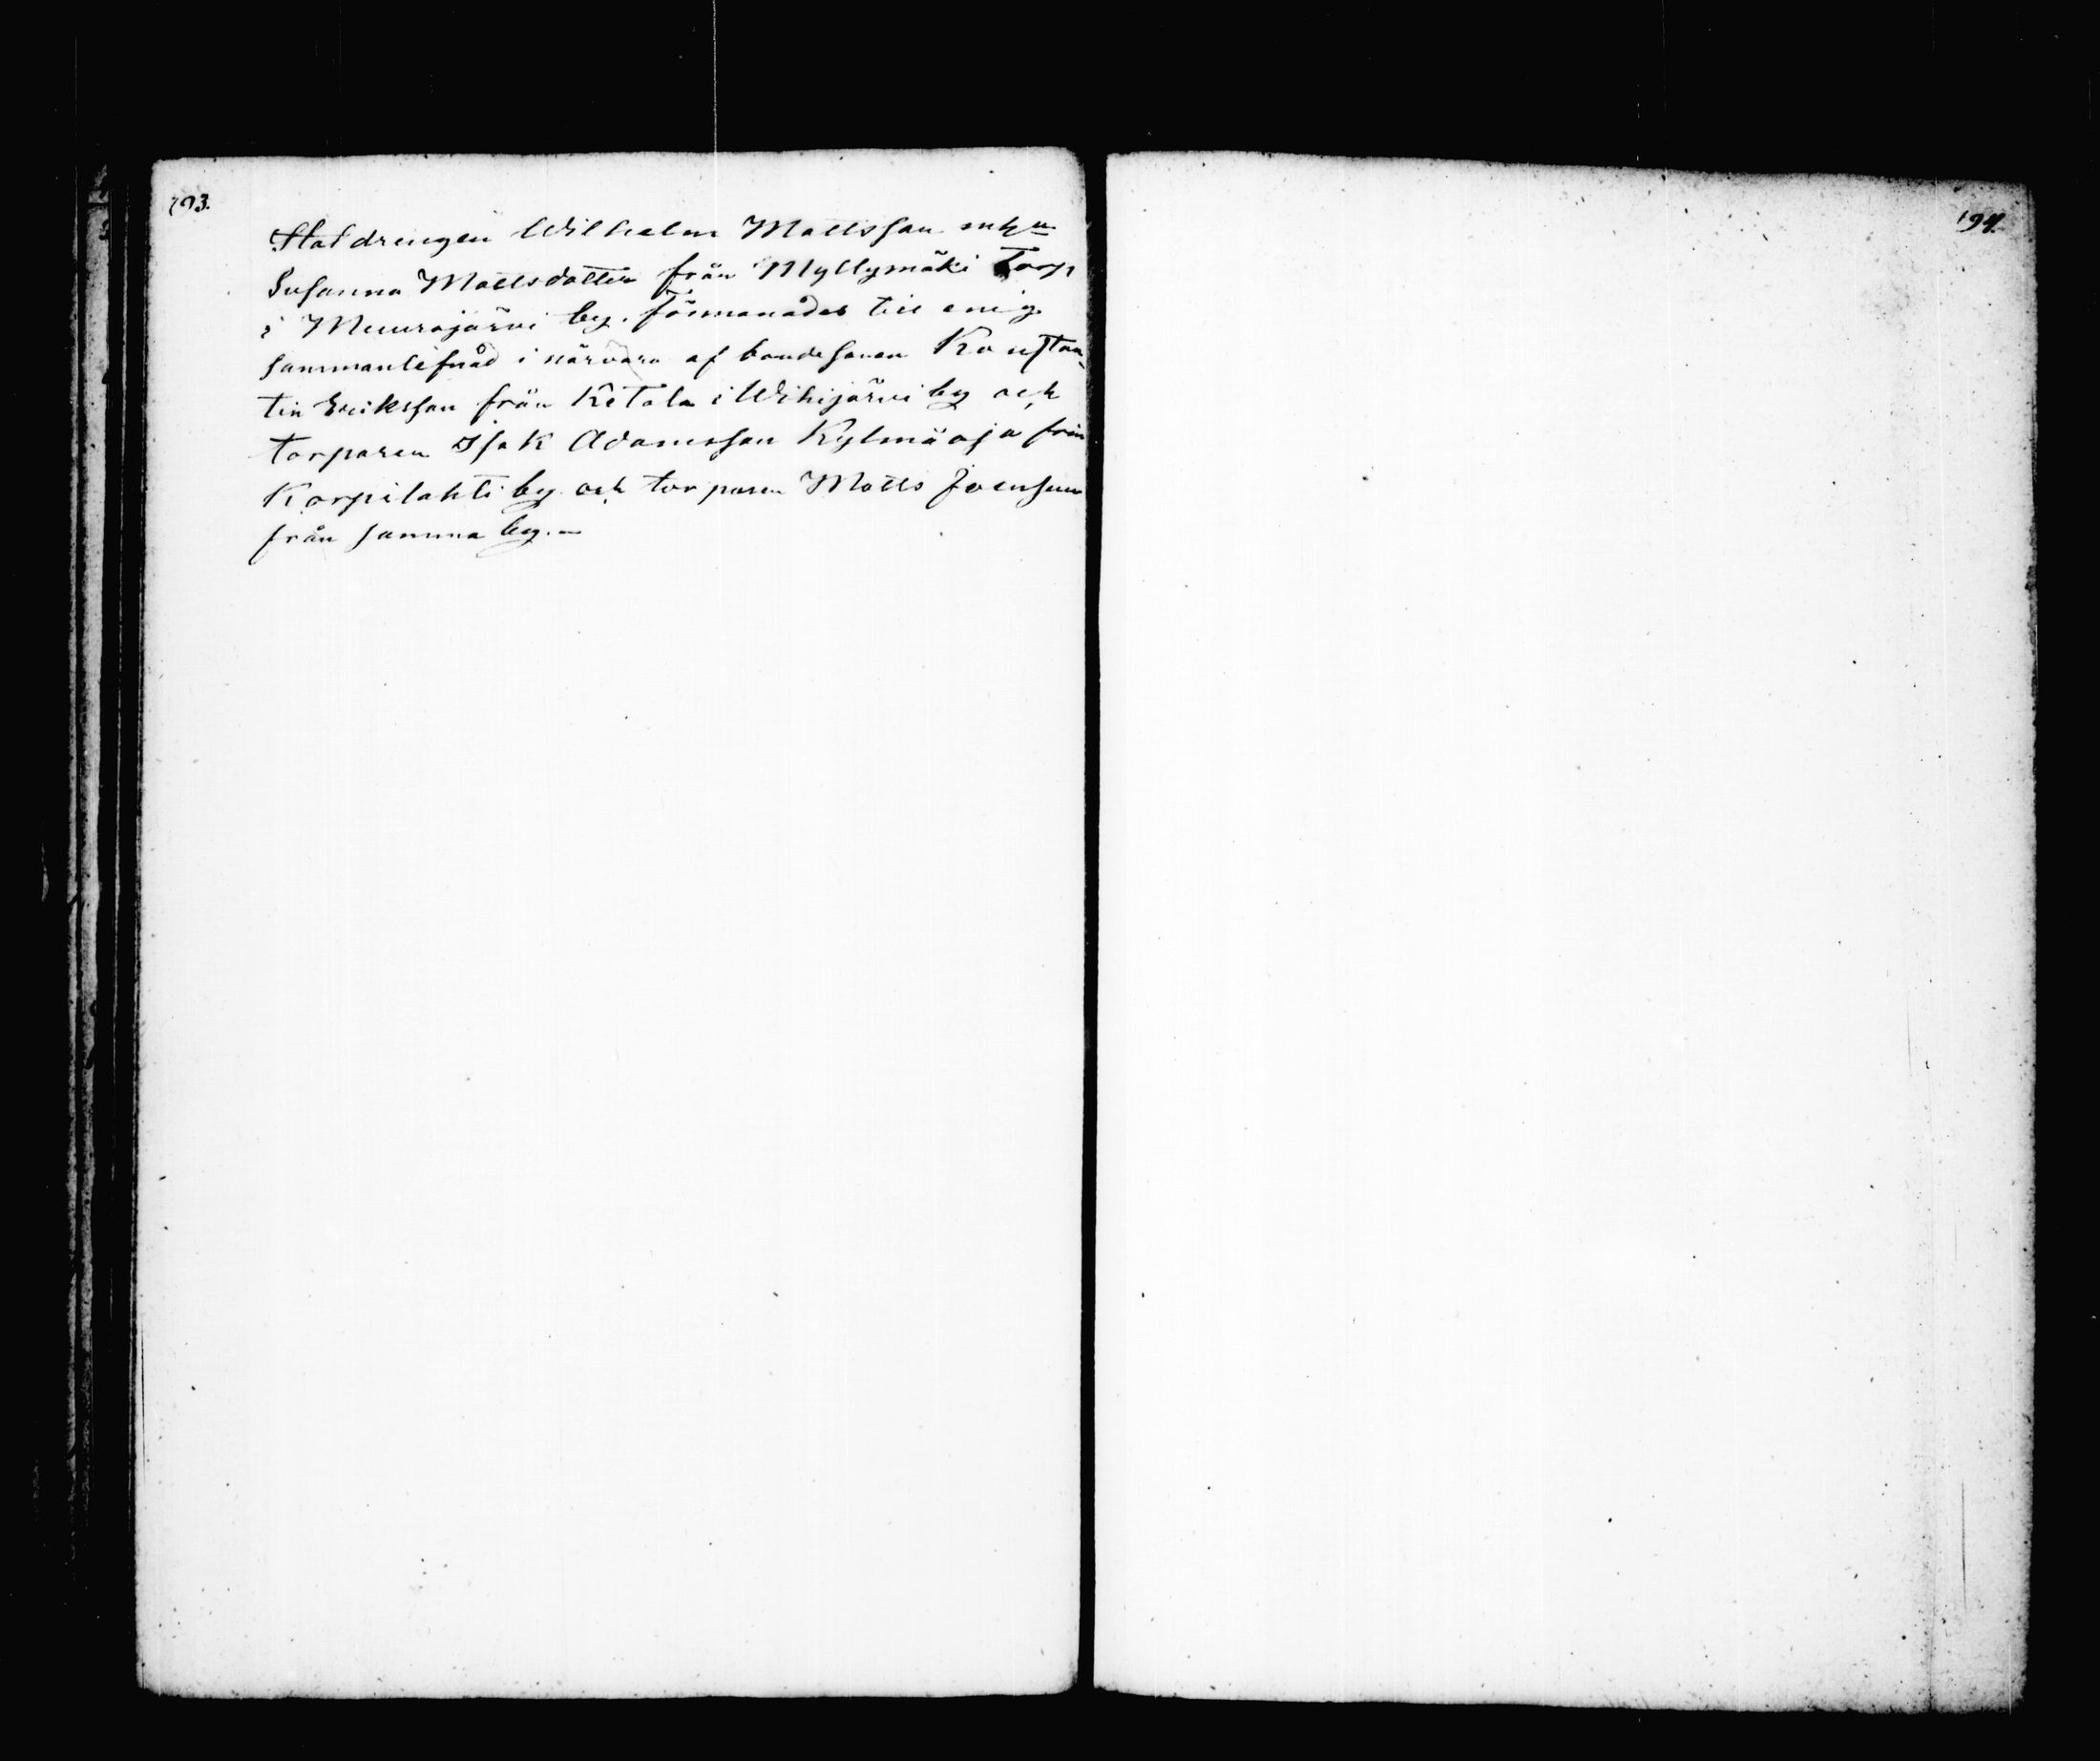 193.
Staldrengen Wilhelm Mattsson och
Susanna Mattsdotter från Myllymäki Torp
i Muurajärvi by. förmanades till enig
sammanlefnad i närvaro af bondesonen Konstan-
tin Eriksson från Ketola i Wihijärvi by och
torparen Isak Adamsson Kylmäoja från
Korpilahti by och torparen Matts Joensuu
från samma by.—
194.